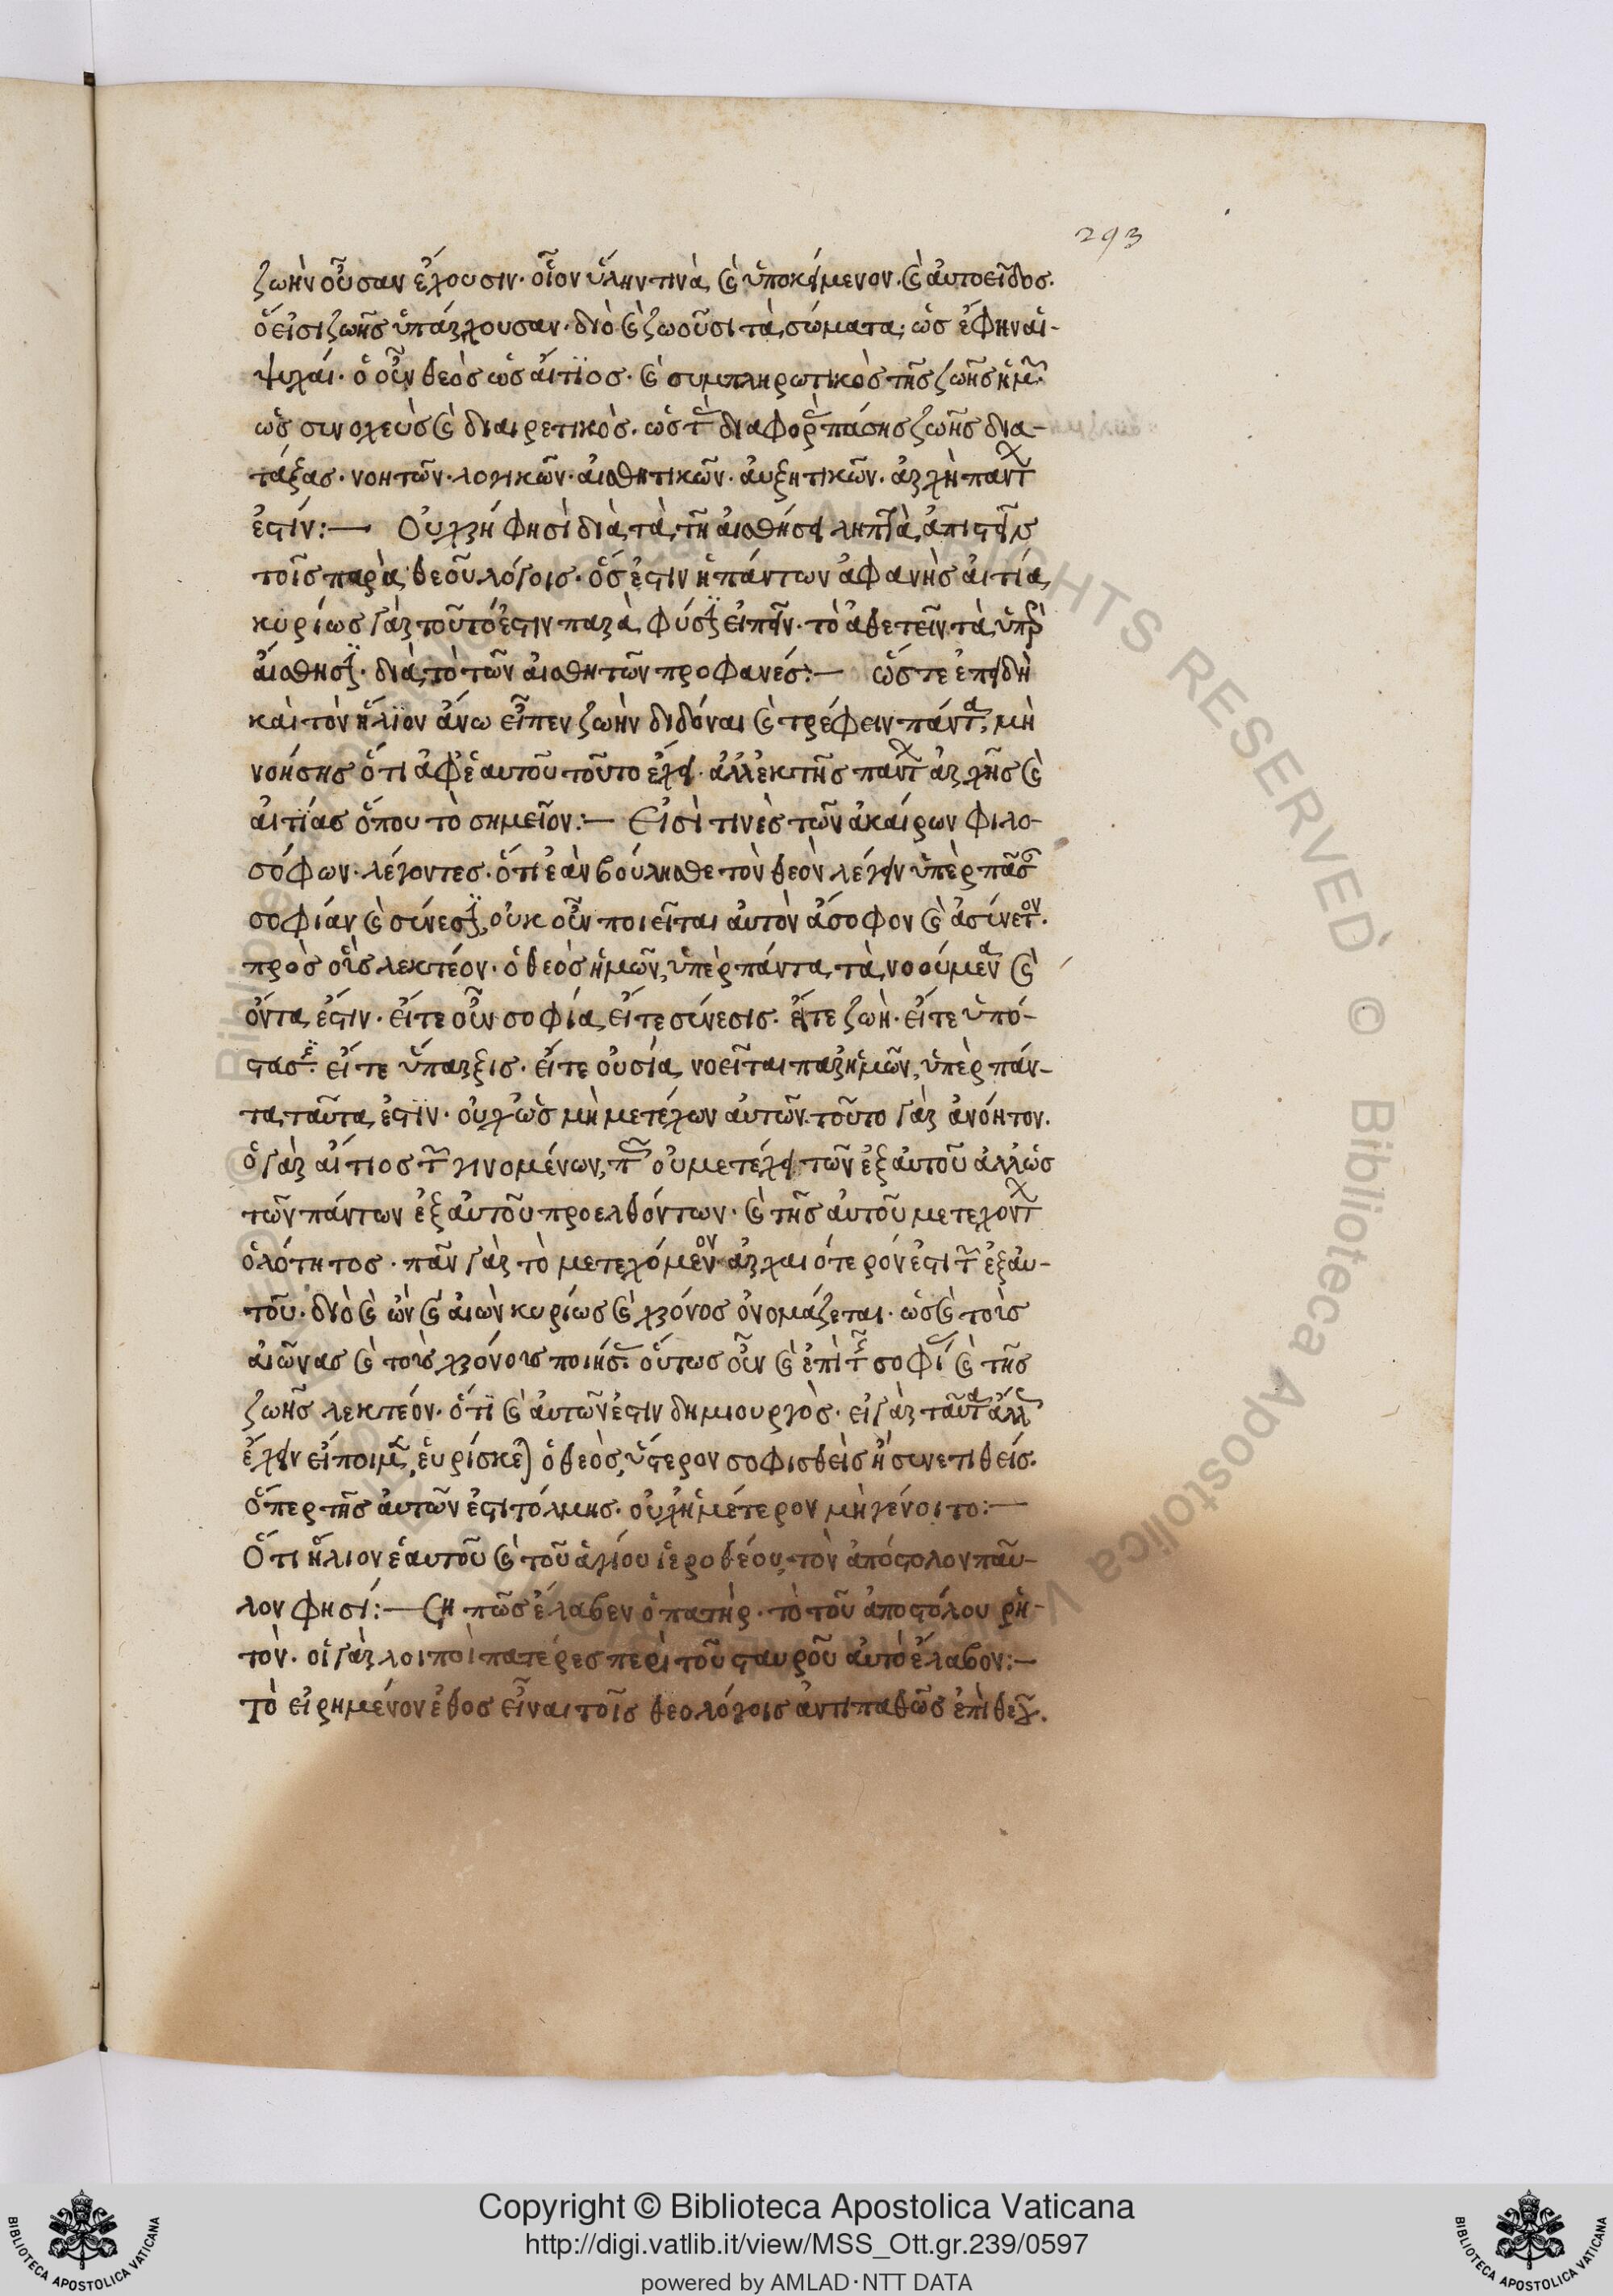 293
ζωὴν οὖσαν ἔχουσιν· οἷον ὕλην τινὰ καὶ ὑποκείμενον· καὶ αὐτοεῖδος·
ὅ εἰσι ζωῆς ὑπάρχουσαν· διὸ καὶ ζωοῦσι τὰ σώματα· ὡς ἔφην αἱ-
ψυχαί· ὁ οὖν θεὸς ὡς αἴτιος· καὶ συμπληρωτικὸς τῆς ζωῆς ἡμῶν·
ὡς συνοχεὺς καὶ διαιρετικὸς· ὡς τὰς διαφορὰς πάσης ζωῆς δια-
τάξας· νοητῶν· λογικῶν· αἰσθητικῶν· αὐξητικῶν· ἀρχὴ παντων
ἐστίν:— Οὐ χρή φησὶ διὰ τὰ τῇ αἰσθήσει ληπτὰ, ἀπιστεῖν
τοῖς παρὰ θεοῦ λόγοις· ὅς ἐστιν ἡ πάντων ἀφανὴς αἰτία,
κυρίως γὰρ τοῦτό ἐστιν παρὰ φύσιν εἰπεῖν· τὸ ἀθετεῖν τὰ ὑπὲρ
αἴσθησιν· διὰ τὸ τῶν αἰσθητῶν προφανές:— ὥστε ἐπειδὴ
καὶ τὸν ἥλιον ἄνω εἶπεν ζωὴν διδόναι καὶ τρέφειν πάντα, μὴ
νοήσης ὅτι ἀφ' ἑαυτοῦ τοῦτο ἔχει· ἀλλ' ἐκ τῆς παντων ἀρχῆς καὶ
αἰτίας ὅπου τὸ σημεῖον:— Εἰσί τινὲς τῶν ἀκαίρων φιλο-
σόφων· λέγοντες· ὅτι ἐὰν βούλησθε τὸν θεὸν λέγειν ὑπὲρ πᾶσαν
σοφίαν καὶ σύνεσιν, οὐκοῦν ποιεῖται αὐτὸν ἄσοφον καὶ ἀσύνετον·
πρὸς οἷς λεκτέον· ὁ θεὸς ἡμῶν, ὑπὲρ πάντα τὰ νοούμενα καὶ
ὄντα ἐστιν· εἴτε οὖν σοφία, εἴτε σύνεσις· εἴτε ζωὴ· εἴτε ὑπό-
στασις· εἴτε ὕπαρξις· εἴτε οὐσία νοεῖται παρ' ἡμῶν, ὑπὲρ πάν-
τα ταῦτα ἐστὶν· οὐχ ὡς μὴ μετέχων αὐτῶν· τοῦτο γὰρ ἀνόητον·
ὁ γὰρ αἴτιος τῶν γινομένων, οὐ μετέχει τῶν ἐξ αὐτοῦ ἀλλ' ὡς
τῶν πάντων ἐξ αὐτοῦ προελθόντων· καὶ τῆς αὐτοῦ μετεχοντων
ὁλότητος· πᾶν γὰρ τὸ μετεχόμενον ἀρχαιότερόν ἐστι τῶν ἐξ αὐ-
τοῦ· διὸ καὶ ὢν καὶ αἰὼν κυρίως καὶ χρόνος ὀνομάζεται· ὡς καὶ τοὺς
αἰῶνας καὶ τοὺς χρόνους ποιήσας· οὕτως οὖν καὶ ἐπὶ τῆς σοφίας καὶ τῆς
ζωῆς λεκτέον· ὅτι καὶ αὐτῶν ἐστιν δημιουργὸς· εἰ γὰρ ταῦτα ἄλλως
ἔχειν εἴποιμεν, εὑρίσκεται ὁ θεὸς, ὕστερον σοφισθεὶς ἢ συνετισθείς·
ὅπερ τῆς αὐτῶν ἐστι τόλμης· οὐχ ἡμέτερον μὴ γένοιτο:—
Ὅτι ἥλιον ἑαυτοῦ καὶ τοῦ ἁγίου ἱεροθέου, τὸν ἀπόστολον παῦ-
λον φησί:— πῶς ἔλαβεν ὁ πατὴρ· τὸ τοῦ ἀποστόλου ῥη-
τὸν· οἱ γὰρ λοιποὶ πατέρες περὶ τοῦ σταυροῦ αὐτὸ ἔλαβον:—
Τὸ εἰρημένον ἔθος εἶναι τοῖς θεολόγοις ἀντιπαθῶς ἐπὶ θεοῦ.
Copyright © Biblioteca Apostolica Vaticana
http://digi.vatlib.it/view/MSS_Ott.gr.239/0597
powered by AMLAD·NTT DATA
BIBLIOTECA APOSTOLICA VATICANA
BIBLIOTECA APOSTOLICA VATICANA